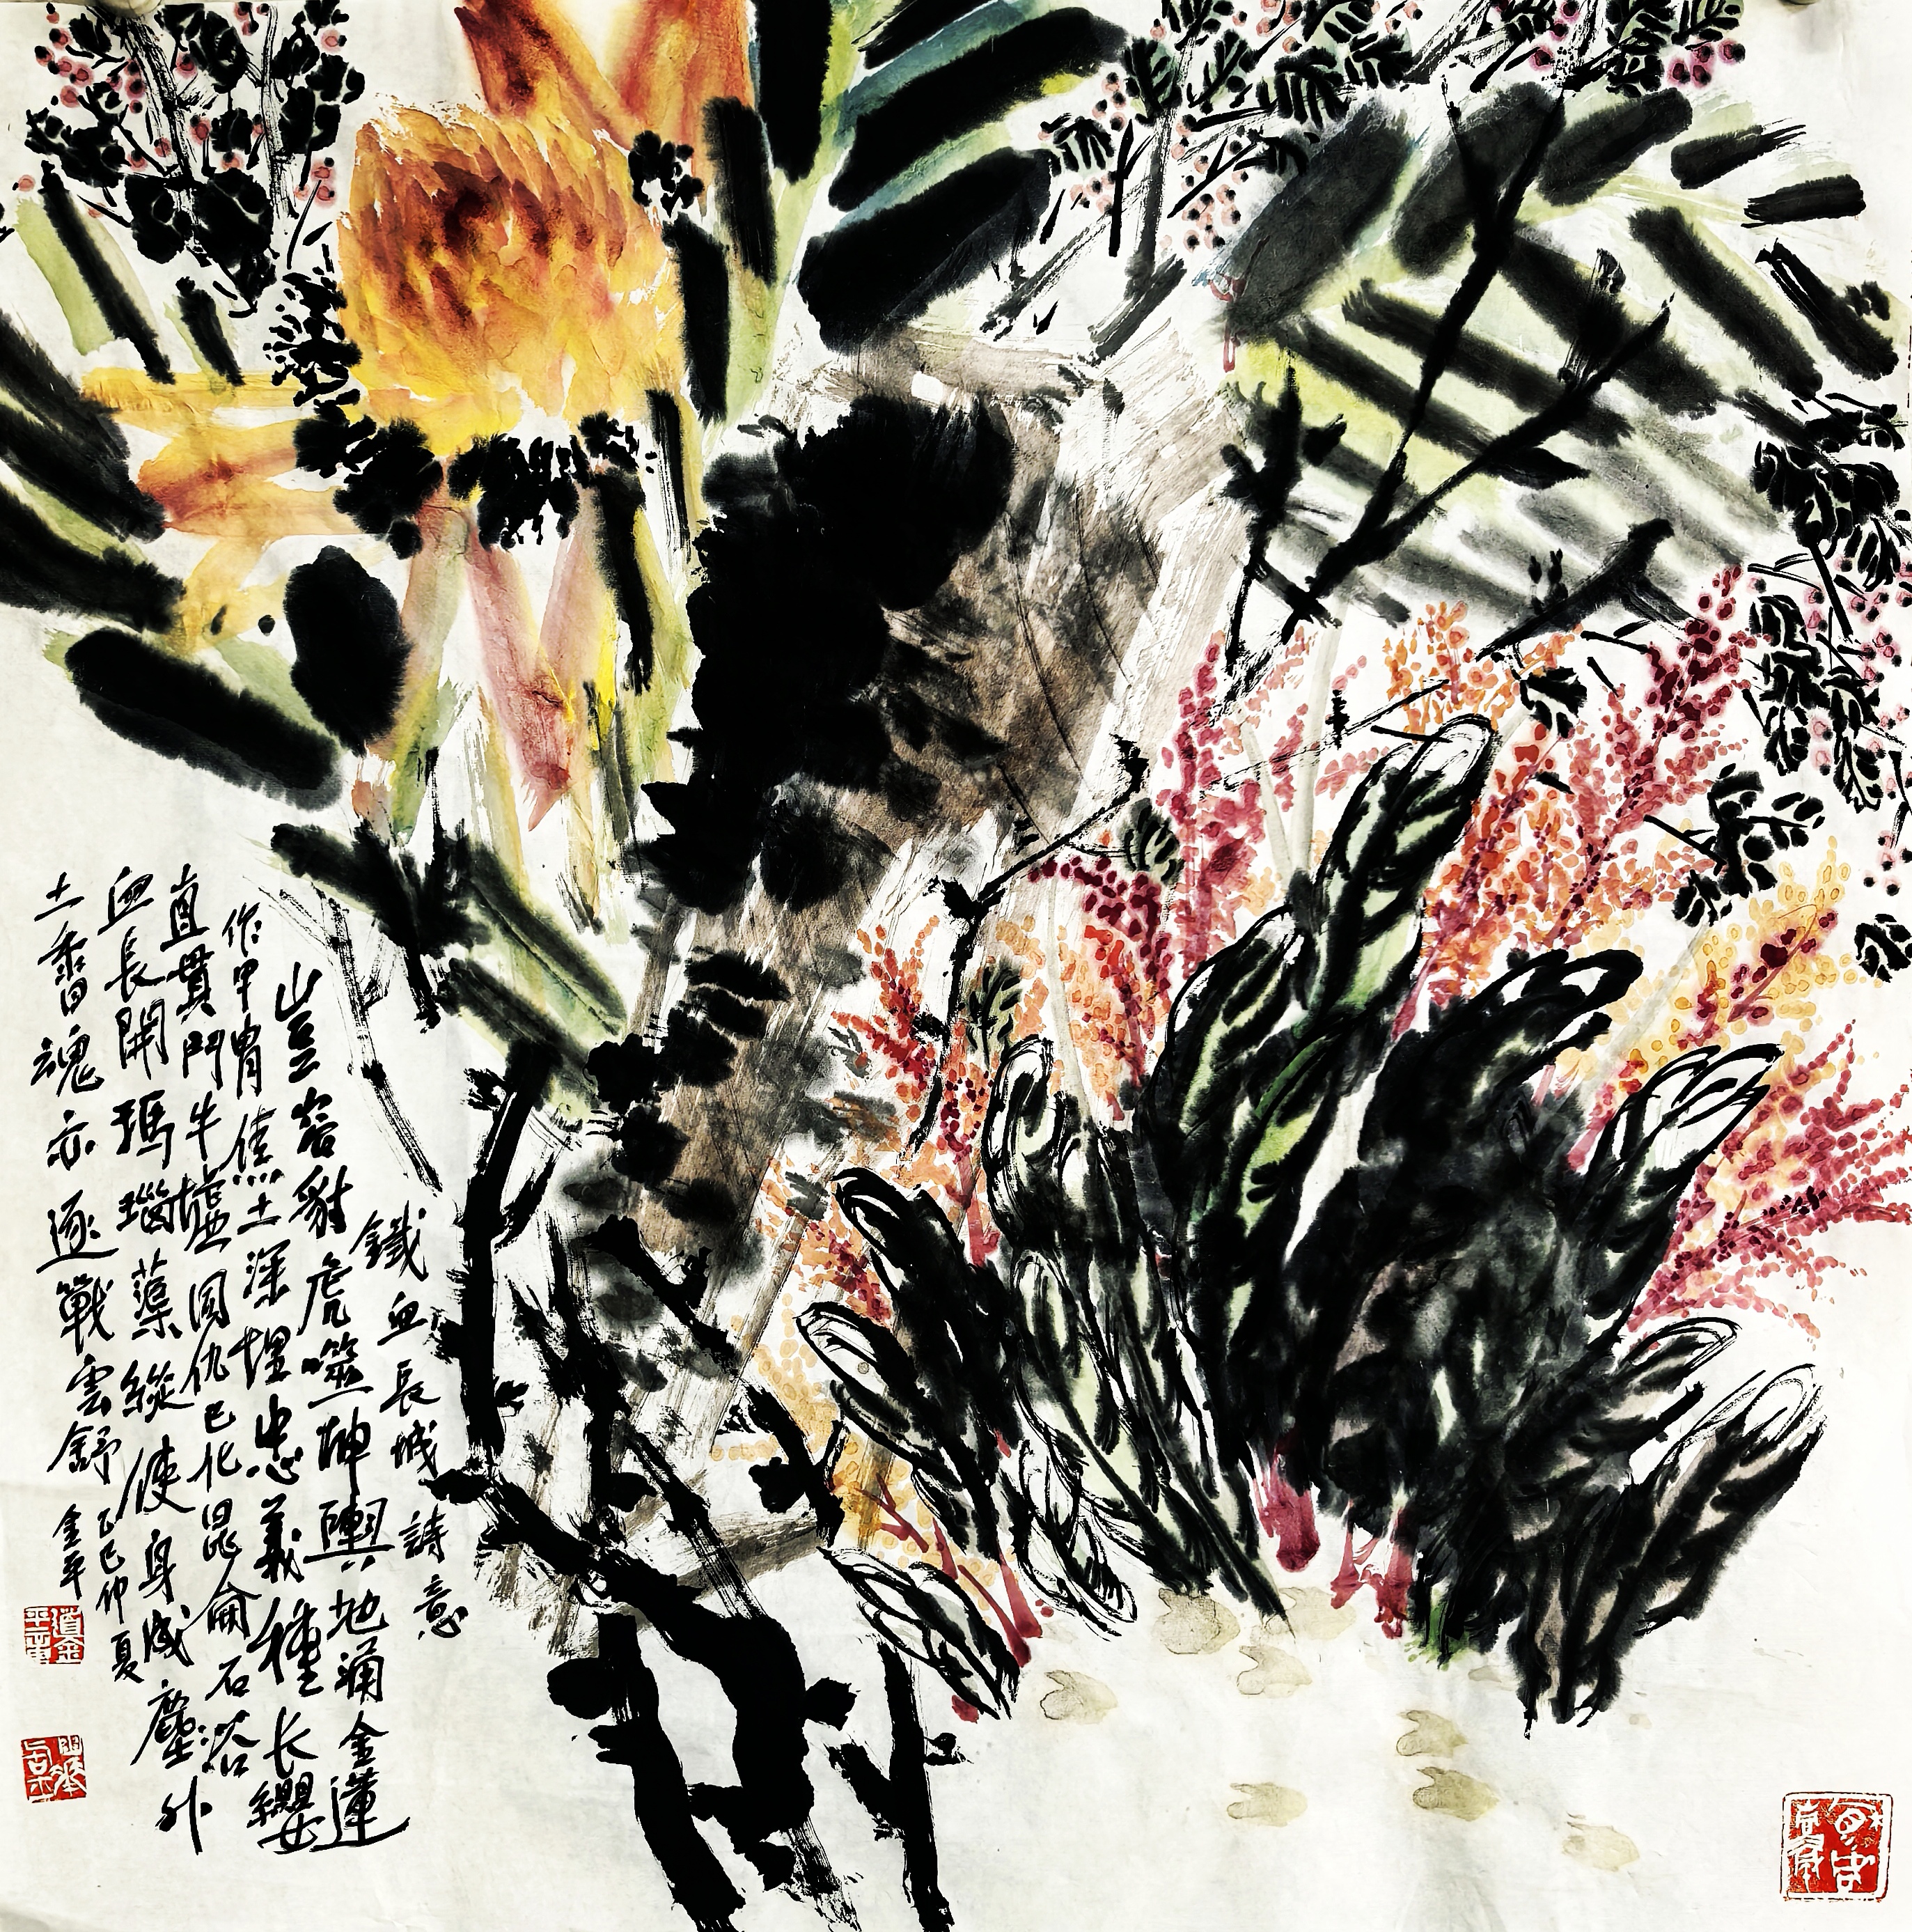 鐵血長城詩意
豈容豺虎噬坤輿地涌金蓮
作甲胄焦土深埋忠義種长纓
直貫鬥牛墟同仇已化昆侖石浴
血長開瑪瑙蕖縱使身成塵外
土香魂亦逐戰雲舒
乙巳仲夏
金平